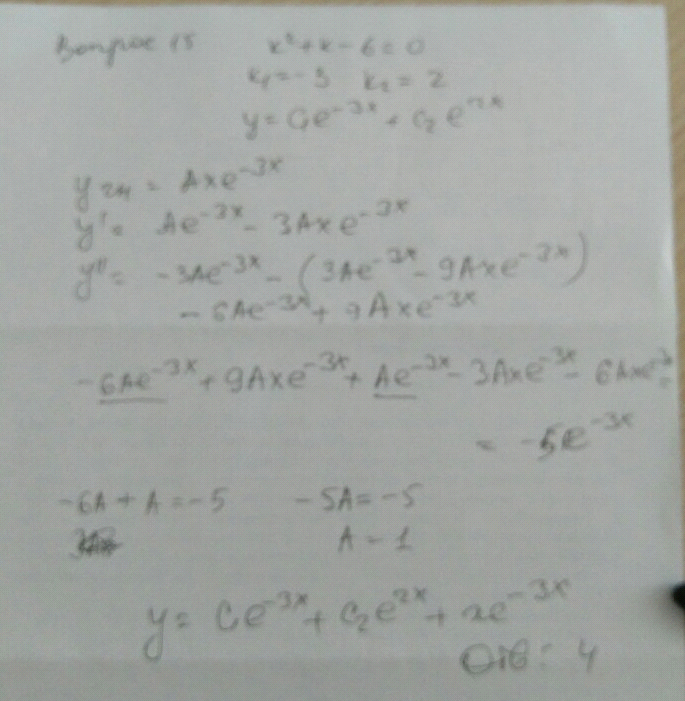 Вопрос 15 k²+k-6=0
k₁=-3 k₂=2
y=C₁e^{-3x}+C₂e^{2x}
y_{чн}=Axe^{-3x}
y'=Ae^{-3x}-3Axe^{-3x}
y''=-3Ae^{-3x}-(3Ae^{-3x}-9Axe^{-3x})
-6Ae^{-3x}+9Axe^{-3x}
-6Ae^{-3x}+9Axe^{-3x}+Ae^{-3x}-3Axe^{-3x}-6Axe^{-3x}=
=-5e^{-3x}
-6A+A=-5 -5A=-5
A=1
y=Ce^{-3x}+C₂e^{2x}+xe^{-3x}
Отв: 4